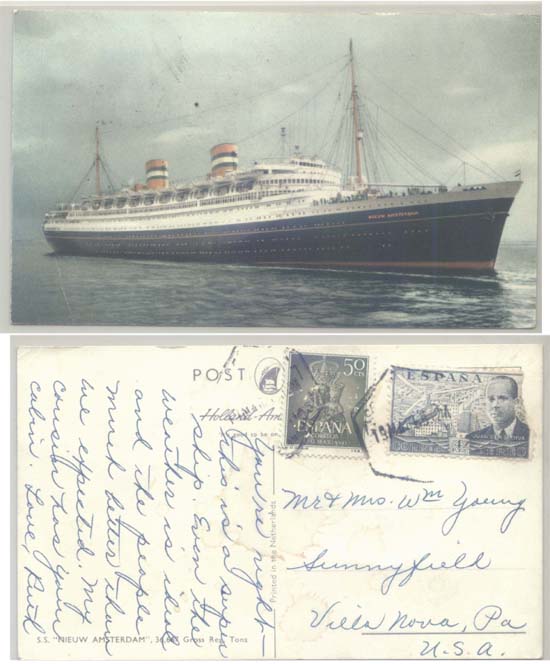 NIEUW AMSTERDAM
POST
Holland-Am
50
CTS
ESPAÑA
CORREOS
ESPAÑA
You're right —
this is a super
ship. Even the
weather is ideal
and the people
much better than
we expected. My
cousin has your
cabin. Love, Ruth
Printed in the Netherlands
Mr & Mrs. Wm Young
Sunnyfield
Villa Nova, Pa
U.S.A.
S.S. "NIEUW AMSTERDAM", 36.667 Gross Reg. Tons